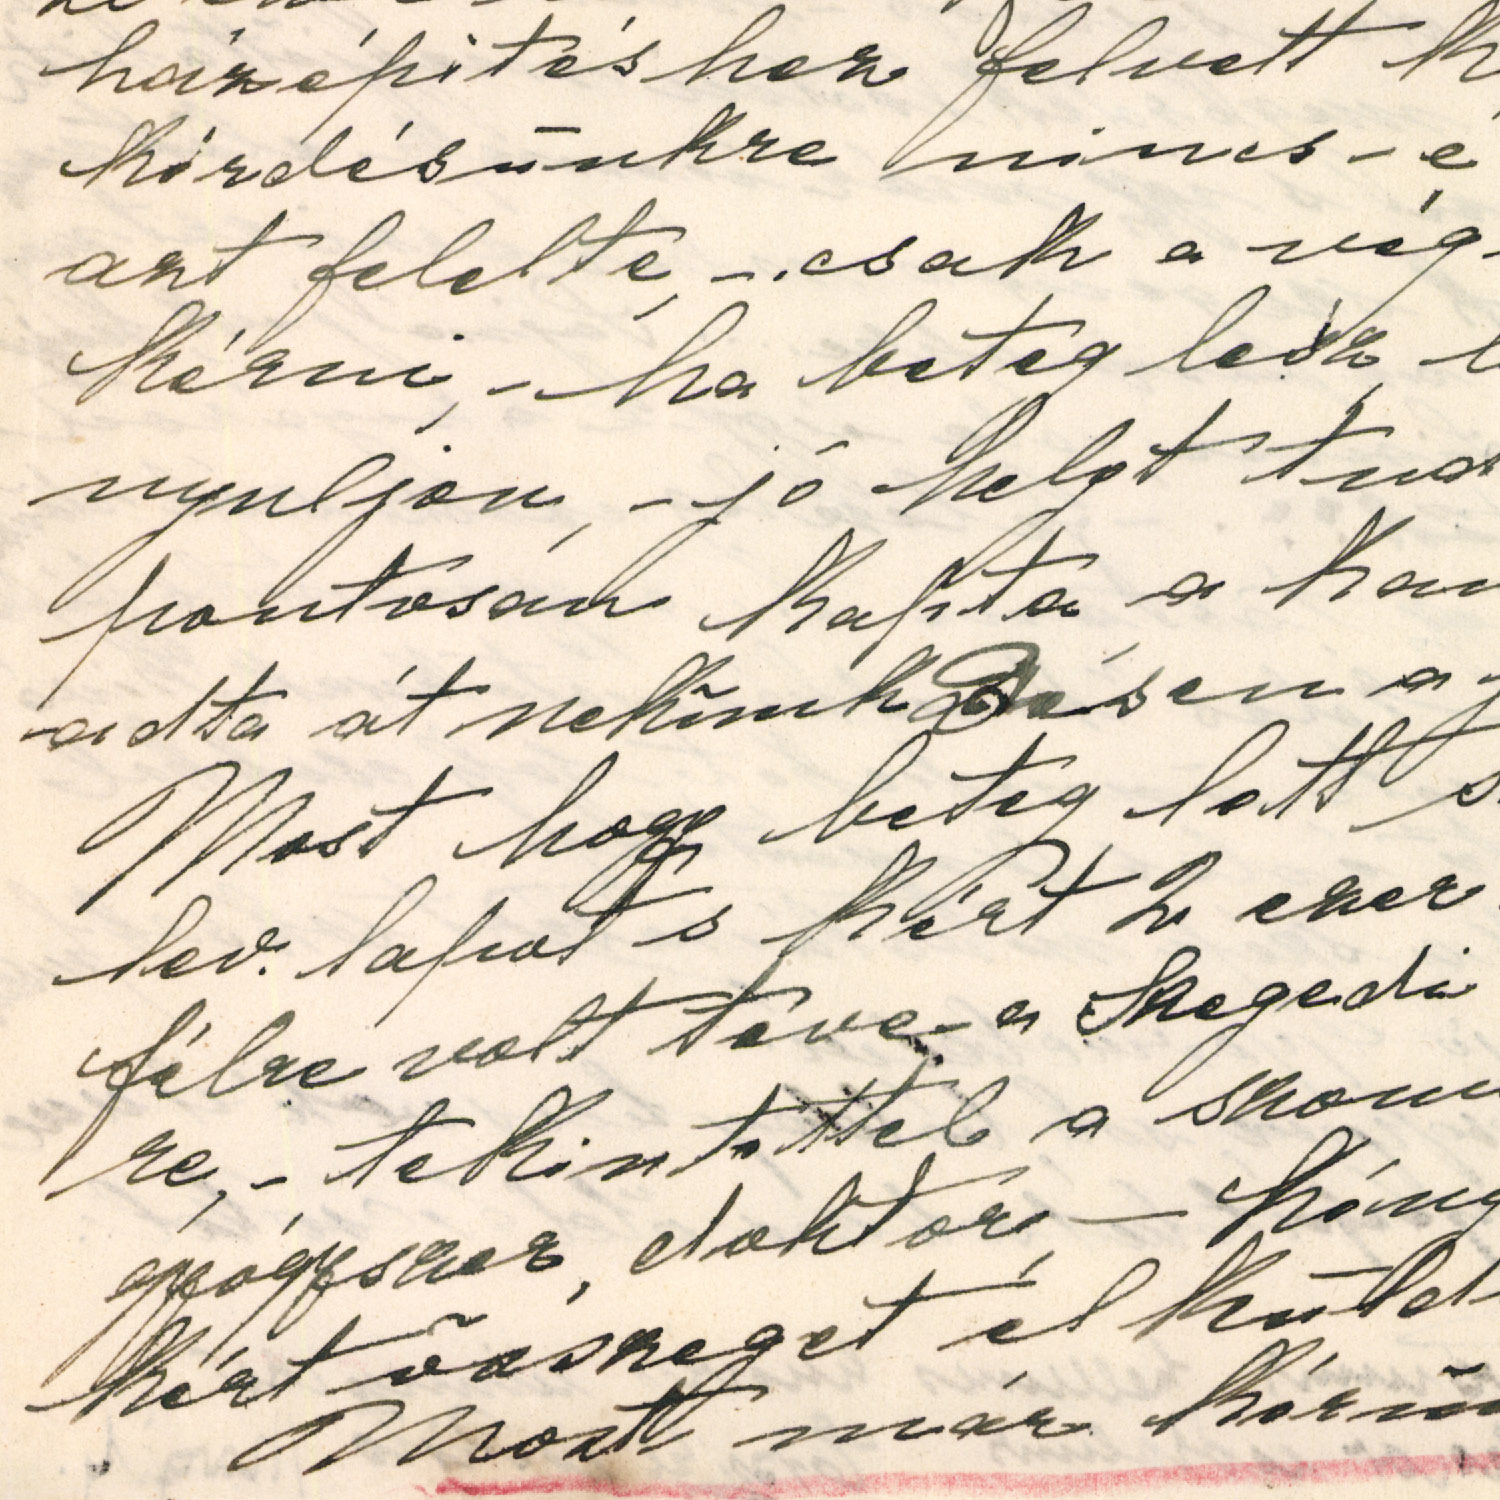 házépitéshez felvett k
kérdésünkre nincs-e
azt felelte, - csak a vég-
kérni, - ha beteg lesz,
nyuljon, - jó helyt tud
pontosan kapta a kam
adta át nekünk Désen a
Most hogy beteg lett s
lev. lapot s kért 2 ezer
félre volt téve - a szegedi
re, - tekintettel a szom
gyógyszer, doktor, - kény
kért összeget el küld
Most már kérün